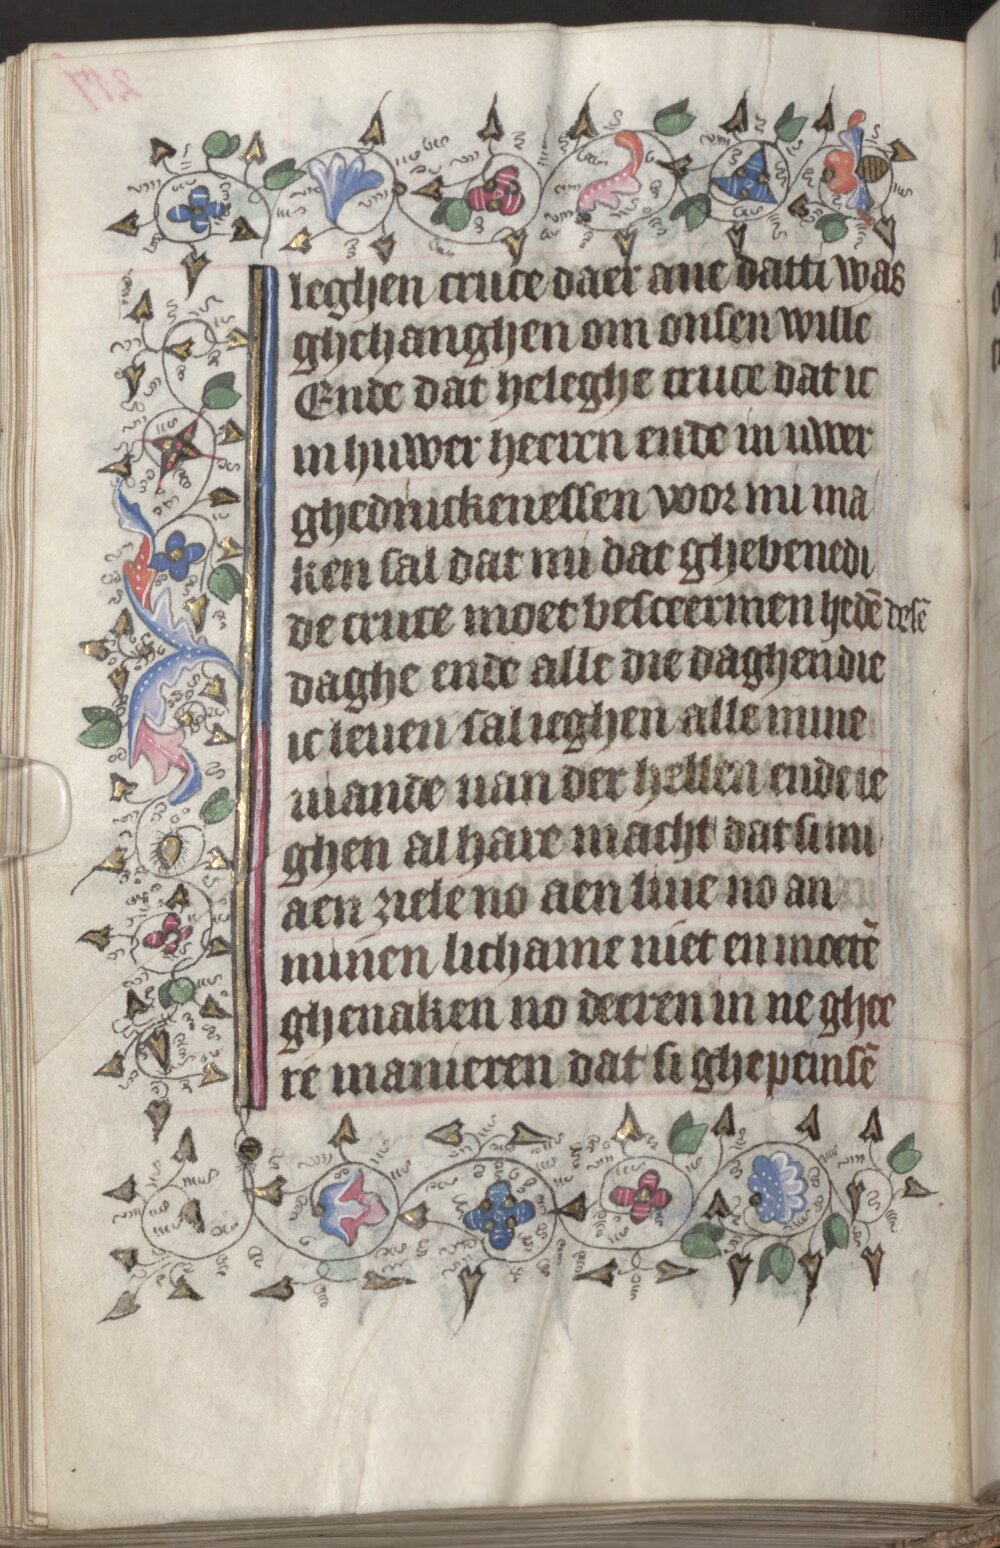 leghen cruce daer ane datti was
ghehanghen om onsen wille
Ende dat heleghe cruce dat ic
in huwer heeren ende in uwer
ghedinckenessen voor mi ma
ken sal dat mi dat ghebenedi
de cruce moet bescermen hedē desē
daghe ende alle die daghen die
ic leuen sal ieghen alle mine
uiande uan der hellen ende ie
ghen al hare macht dat si mi
aen ziele no aen liue no an
minen lichame niet en moetē
ghenaken no deeren in ne ghee
re manieren dat si ghepeinsē